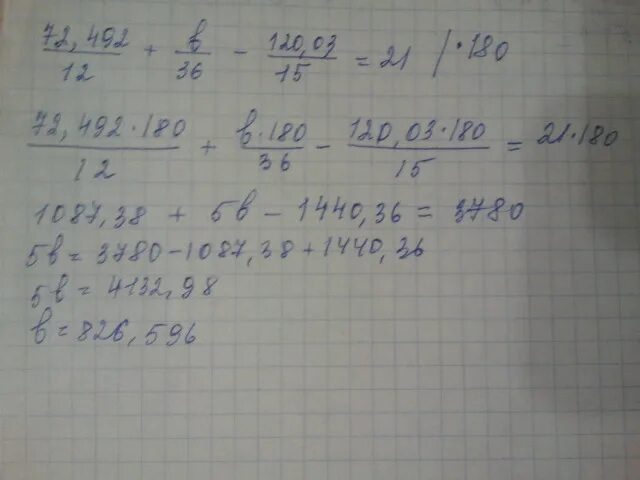 72,492/12 + b/36 - 120,03/15 = 21 /·180
72,492·180/12 + b·180/36 - 120,03·180/15 = 21·180
1087,38 + 5b - 1440,36 = 3780
5b = 3780 - 1087,38 + 1440,36
5b = 4132,98
b = 826,596